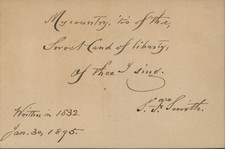 My country, 'tis of thee,
Sweet land of liberty,
Of thee I sing.
Written in 1832.
S. F. Smith.
Jan. 30, 1895.